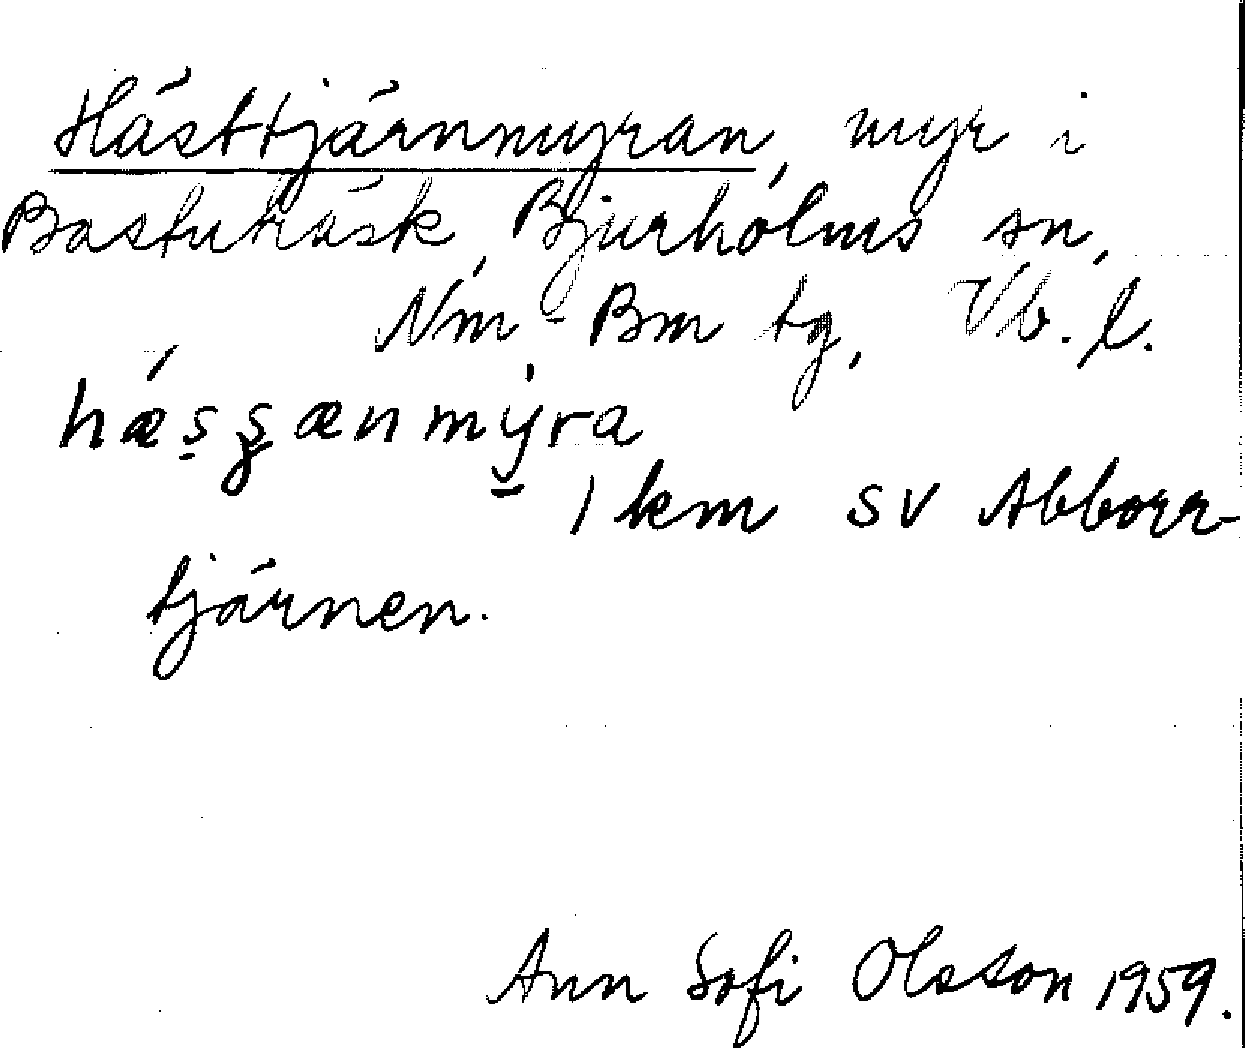 Hästtjärnmyran, myr i
Bastuträsk, Bjurholms sn,
Nm - Bm tg, Vb. l.
hæ´s̠ʂænmy̠´ra
1 km SV Abborr-
tjärnen.
Ann Sofi Olsson 1959.